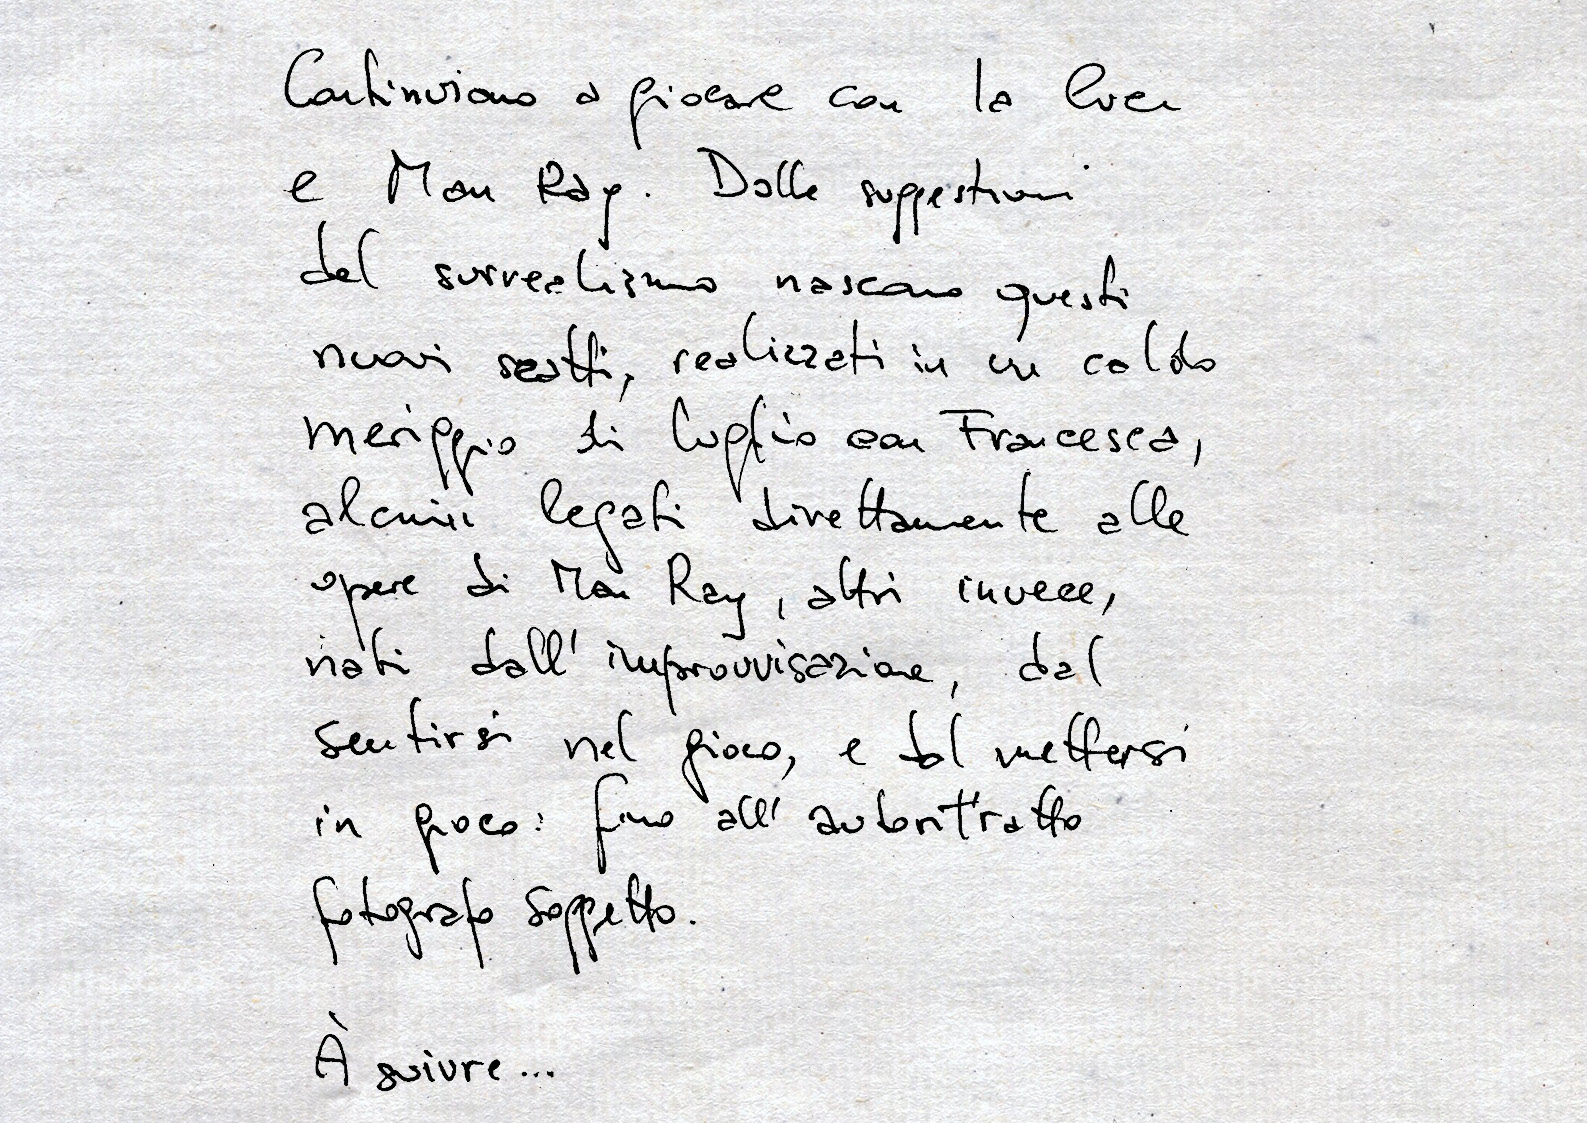 Continuiamo a giocare con la luce
e Man Ray. Dalle suggestioni
del surrealismo nascono questi
nuovi scatti, realizzati in un caldo
meriggio di luglio con Francesca,
alcuni legati direttamente alle
opere di Man Ray, altri invece,
nati dall'improvvisazione, dal
sentirsi nel gioco, e dal mettersi
in gioco: fino all'autoritratto
fotografo soggetto.
À suivre...